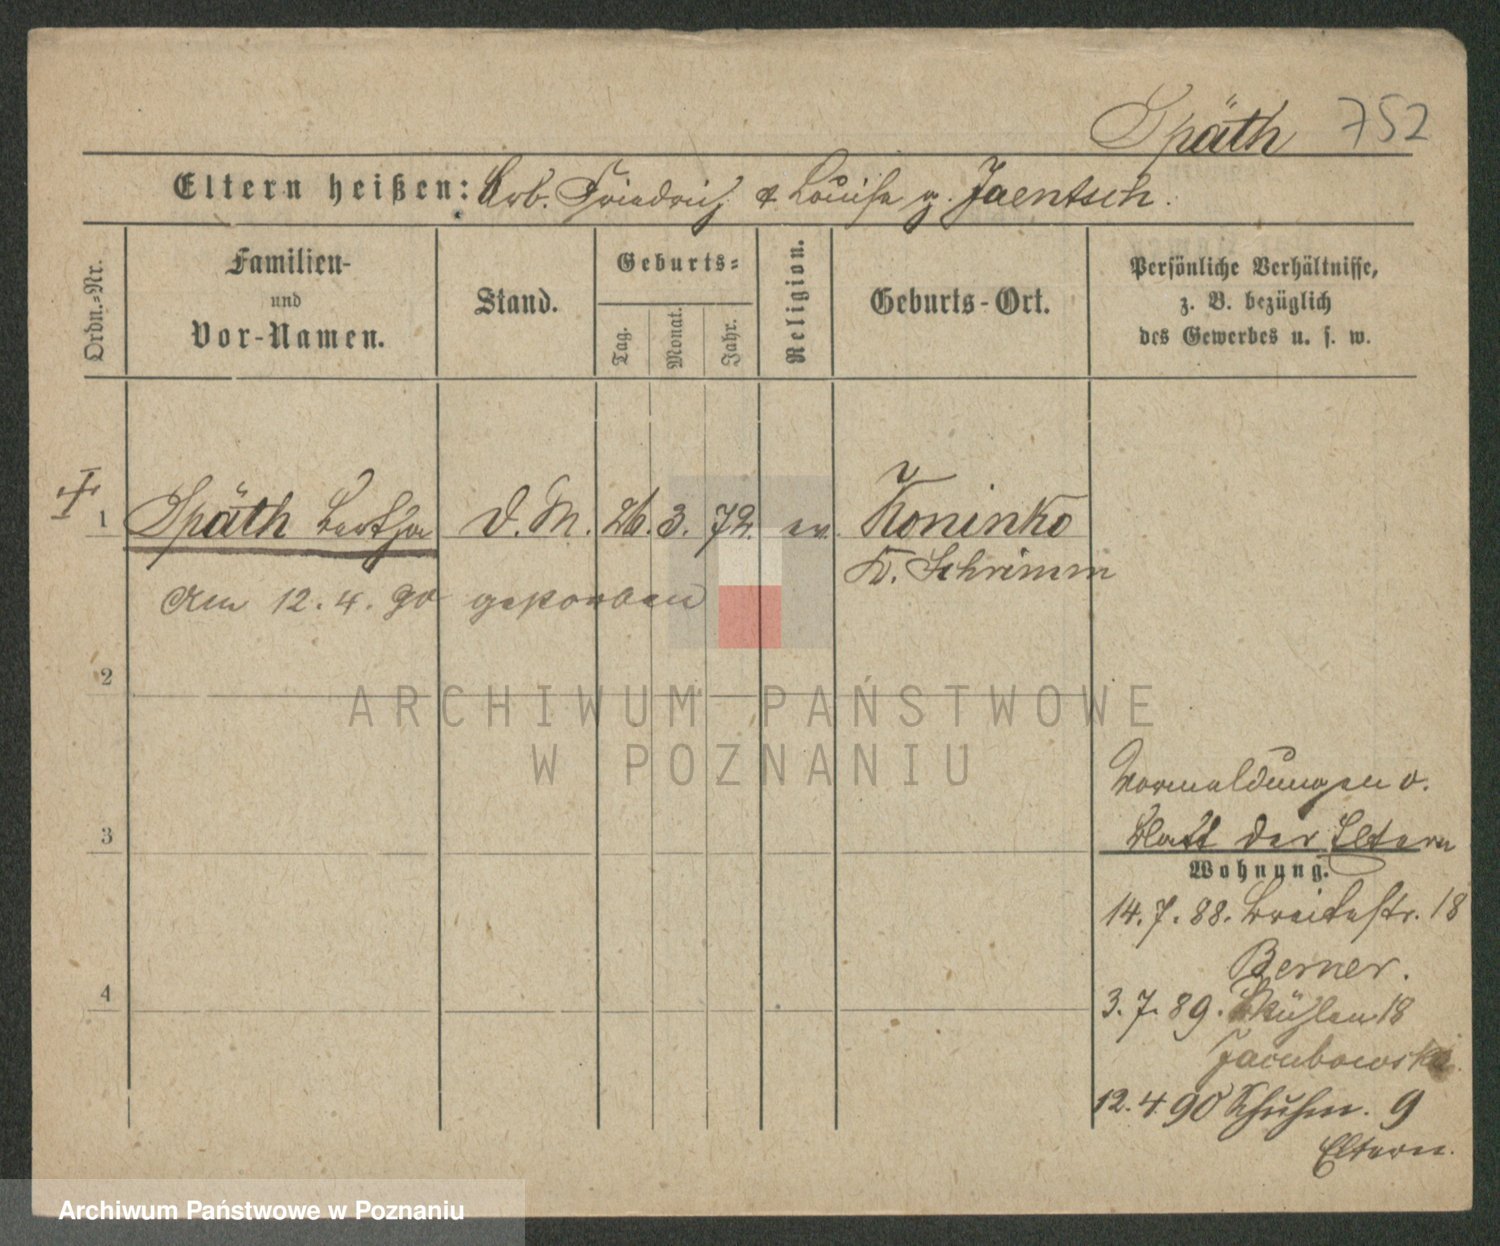 Späth 752
Eltern heißen: Arb. Friedrich & Louise g. Jaentsch.
Ordn.-Nr.
Familien-
und
Vor-Namen.
Stand.
Geburts-
Tag.
Monat.
Jahr.
Religion.
Geburts-Ort.
Persönliche Verhältnisse,
z. B. bezüglich
des Gewerbes u. s. w.
1 Späth Bertha D. M. 26. 3. 72. ev. Koninko
K. Schrimm
Am 12. 4. 90 gestorben
2
3
4
Vormeldungen a.
Blatt der Eltern
Wohnung.
14. 7. 88. Breitestr. 18
Berner.
3. 7. 89. Mühlen 18
Jacubowska.
12. 4 90 Schuhm. 9
Eltern.
ARCHIWUM PAŃSTWOWE
W POZNANIU
Archiwum Państwowe w Poznaniu